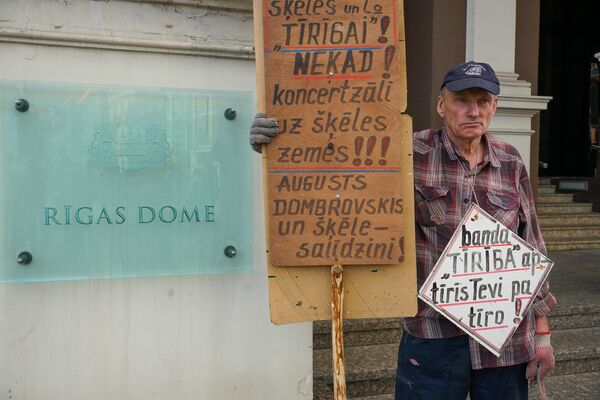 RĪGAS DOME
šķēles un Lo
"TĪRĪGAI"!
"NEKAD!
koncertzāli
uz šķēles
zemes!!!
AUGUSTS
DOMBROVSKIS
un šķēle-
salīdzini!
banda
"TĪRĪBA" ap
tīris Tevi pa
tīro!